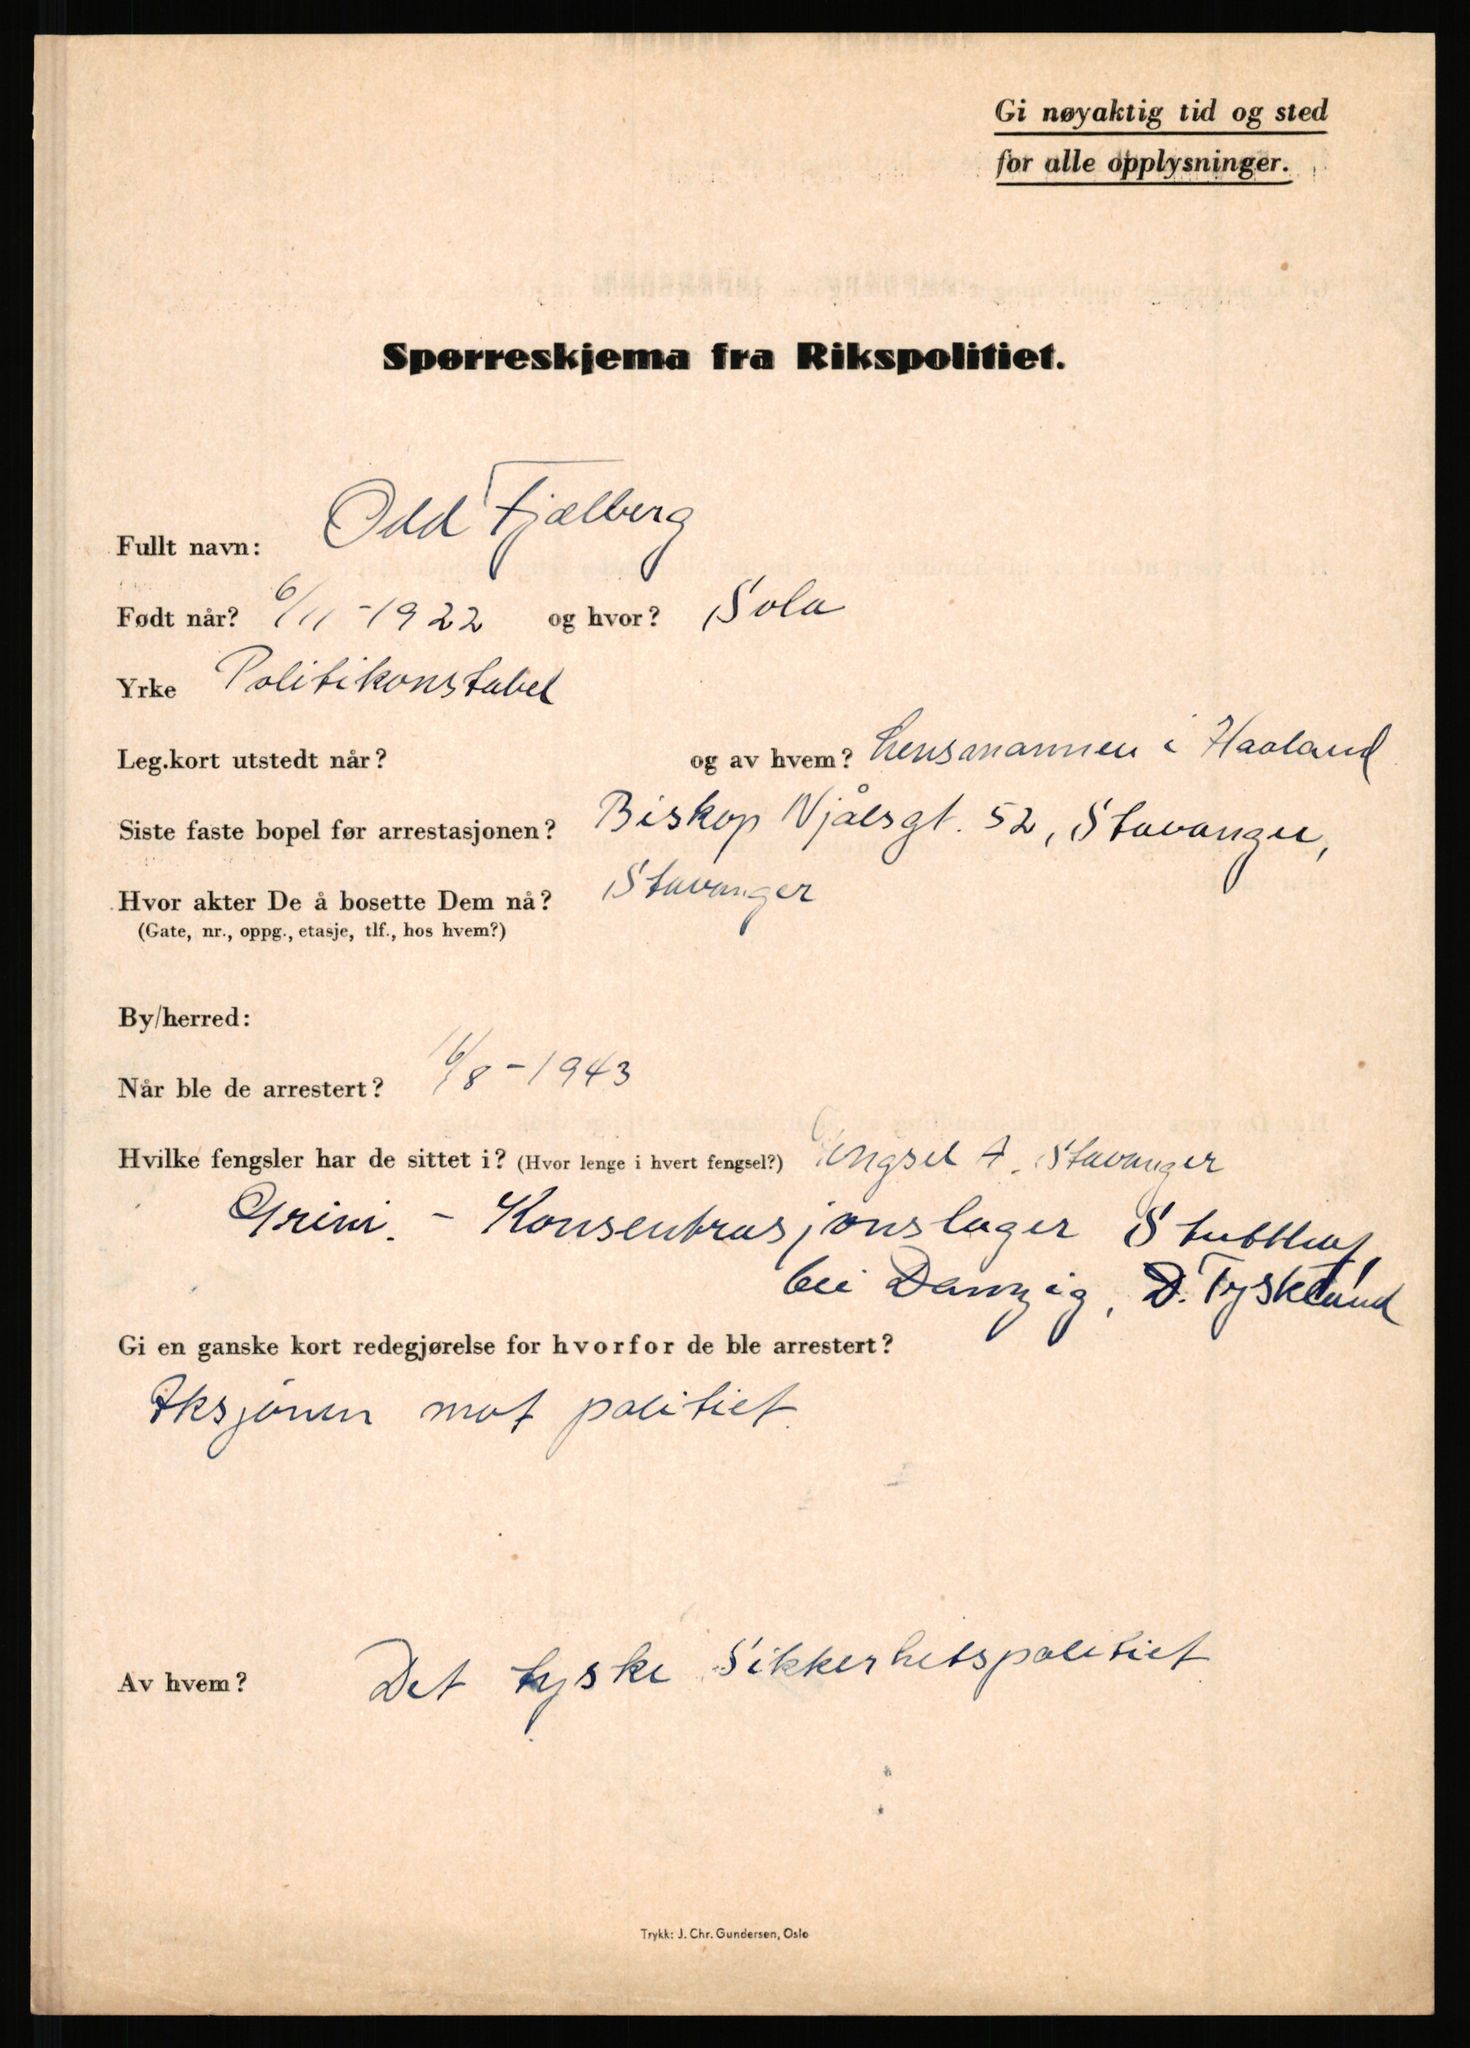 Gi nøyaktig tid og sted
for alle opplysninger.
Spørreskjema fra Rikspolitiet.
Fullt navn: Odd Fjælberg
Født når? 6/11-1922 og hvor? Sola
Yrke Politikonstabel
Leg.kort utstedt når? og av hvem? Lensmannen i Haaland
Siste faste bopel før arrestasjonen? Biskop Njålsgt. 52, Stavanger,
Hvor akter De å bosette Dem nå? Stavanger
(Gate, nr., oppg., etasje, tlf., hos hvem?)
By/herred:
Når ble de arrestert? 16/8-1943
Hvilke fengsler har de sittet i? (Hvor lenge i hvert fengsel?) Fengsel A. Stavanger
Grini. - Konsentrasjonslager Stutthof
bei Danzig, D. Tyskland
Gi en ganske kort redegjørelse for hvorfor de ble arrestert?
Aksjonen mot politiet
Av hvem? Det tyske Sikkerhetspolitiet
Trykk: J. Chr. Gundersen, Oslo